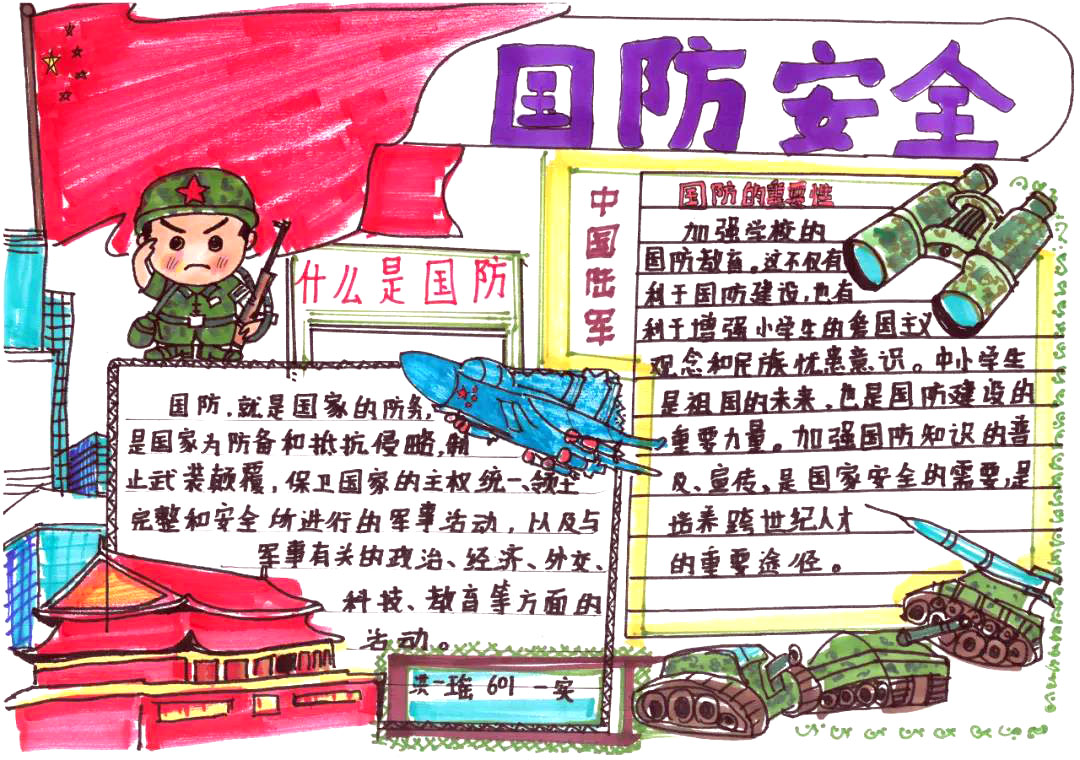 国防安全
什么是国防
国防，就是国家的防务，
是国家为防备和抵抗侵略，制
止武装颠覆，保卫国家的主权统一、领土
完整和安全所进行的军事活动，以及与
军事有关的政治、经济、外交、
科技、教育等方面的
活动。
中国陆军
国防的重要性
加强学校的
国防教育。这不仅有
利于国防建设，也有
利于增强小学生的爱国主义
观念和民族忧患意识。中小学生
是祖国的未来，也是国防建设的
重要力量。加强国防知识的普
及、宣传、是国家安全的需要，是
培养跨世纪人才
的重要途径。
洪一瑶 601 一实